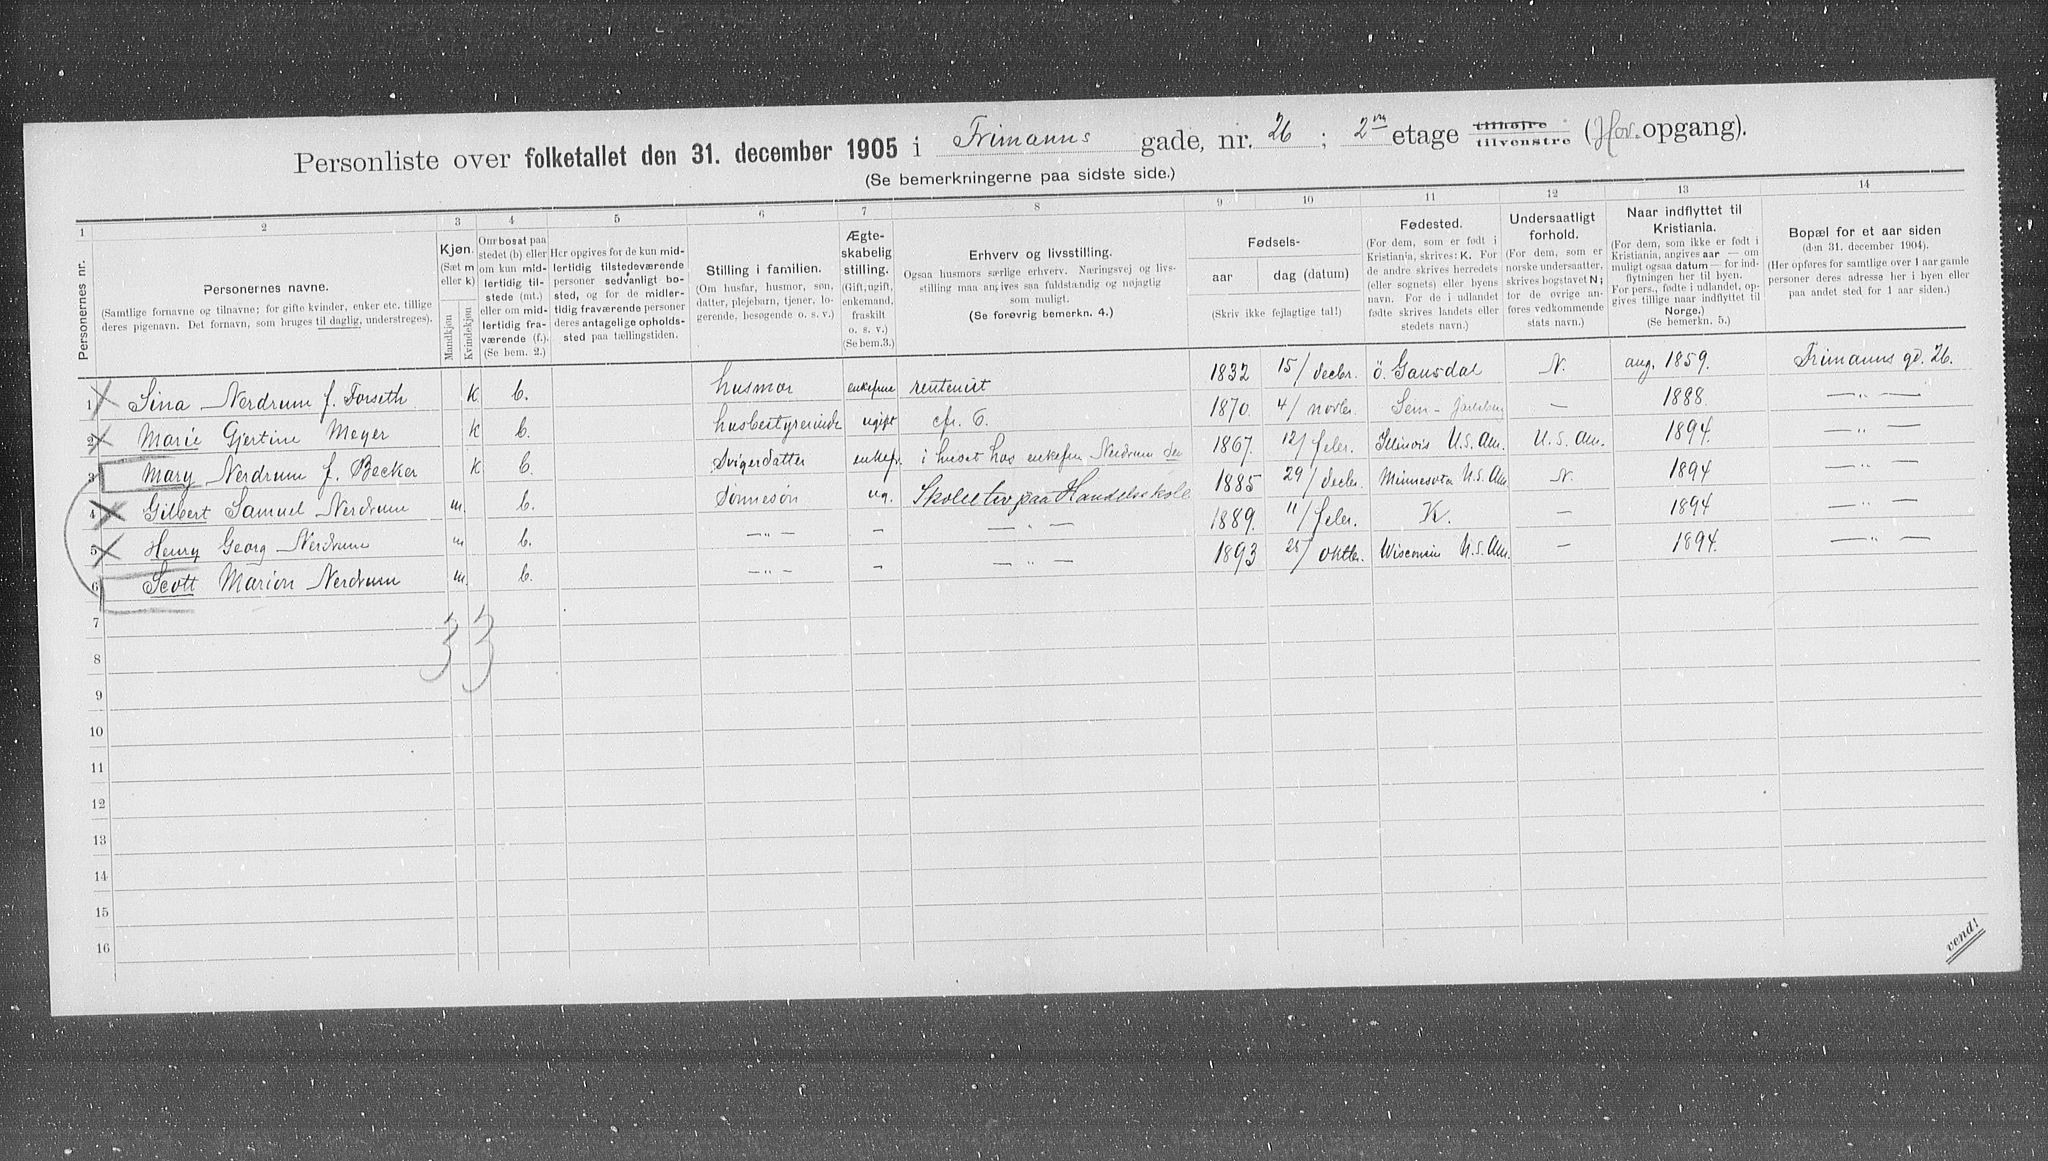 Personliste over folketallet den 31. december 1905 i Frimanns gade, nr. 26 ; 2 etage tilhøjre tilvenstre (Hov. opgang).
(Se bemerkningerne paa sidste side.)
1 2 3 4 5 6 7 8 9 10 11 12 13 14
Personernes nr.
Personernes navne.
(Samtlige fornavne og tilnavne; for gifte kvinder, enker etc. tillige deres pigenavn. Det fornavn, som bruges til daglig, understreges).
Kjøn.
(Sæt m eller k)
Mandkjøn
Kvindekjøn
Om bosat paa stedet (b) eller om kun midlertidig tilstede (mt.) eller om midlertidig fraværende (f.). (Se bem. 2.)
Her opgives for de kun midlertidig tilstedeværende personer sedvanligt bosted, og for de midlertidig fraværende personer deres antagelige opholdssted paa tællingstiden.
Stilling i familien.
(Om husfar, husmor, søn, datter, plejebarn, tjener, logerende, besøgende o. s. v.)
Ægteskabelig stilling.
(Gift, ugift, enkemand, fraskilt o. s. v.)
(Se bem.3.)
Erhverv og livsstilling.
Ogsaa husmors særlige erhverv. Næringsvej og livsstilling maa angives saa fuldstændig og nøjagtig som muligt.
(Se forøvrig bemerkn. 4.)
Fødsels-
aar
dag (datum)
(Skriv ikke fejlagtige tal!)
Fødested.
(For dem, som er født i Kristiania, skrives: K. For de andre skrives herredets (eller sognets) eller byens navn. For de i udlandet fødte skrives landets eller stedets navn.)
Undersaatligt forhold.
(For dem, som er norske undersaatter, skrives bogstavet N; for de øvrige anføres vedkommende stats navn.)
Naar indflyttet til Kristiania.
(For dem, som ikke er født i Kristiania, angives aar — om muligt ogsaa datum — for indflytningen her til byen. For pers., fødte i udlandet, opgives tillige naar indflyttet til Norge.)
(Se bemerkn. 5.)
Bopæl for et aar siden
(den 31. december 1904).
(Her opføres for samtlige over 1 aar gamle personer deres adresse her i byen eller paa andet sted for 1 aar siden.)
1 Sina Nerdrum f. Forseth K b. husmor enkefrue rentenist 1832 15/ decbr. ö. Gausdal N. aug. 1859. Frimanns gd. 26.
2 Marie Gjertine Meyer K b. husbestyrerinde ugift cfr. 6. 1870. 4/ novbr. Sem - Jarlsberg — 1888. — „ —
3 Mary Nerdrum f. Becker K b. Svigerdatter enkefr. i huset hos enkefru Nerdrum 1867. 12/ febr. Illinois U.S. Am. U.S. Am. 1894. — „ —
4 Gilbert Samuel Nerdrum m. b. Sönnesön ug. Skoleelev paa Handelsskole 1885 29/ decbr. Minnesota U.S. Am N. 1894 — „ —
5 Henry Georg Nerdrum m b. — „ — — — „ — 1889. 11/ febr. K. — 1894 — „ —
6 Scott Marion Nerdrum m. b. — „ — — — „ — 1893 25/ oktbr. Wisconsin U.S. Am. — 1894. — „ —
3 3
7
8
9
10
11
12
13
14
15
16
vend!